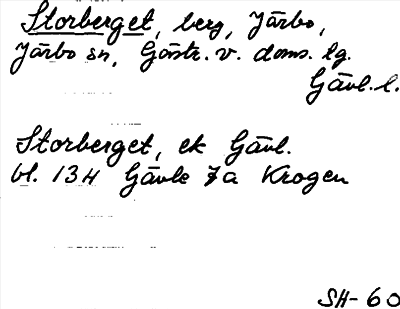 Storberget, berg, Järbo,
Järbo sn, Gästr. v. doms. lg.
Gävl. l.
Storberget, ek Gävl.
bl. 13H Gävle 7a Krogen
SH-60